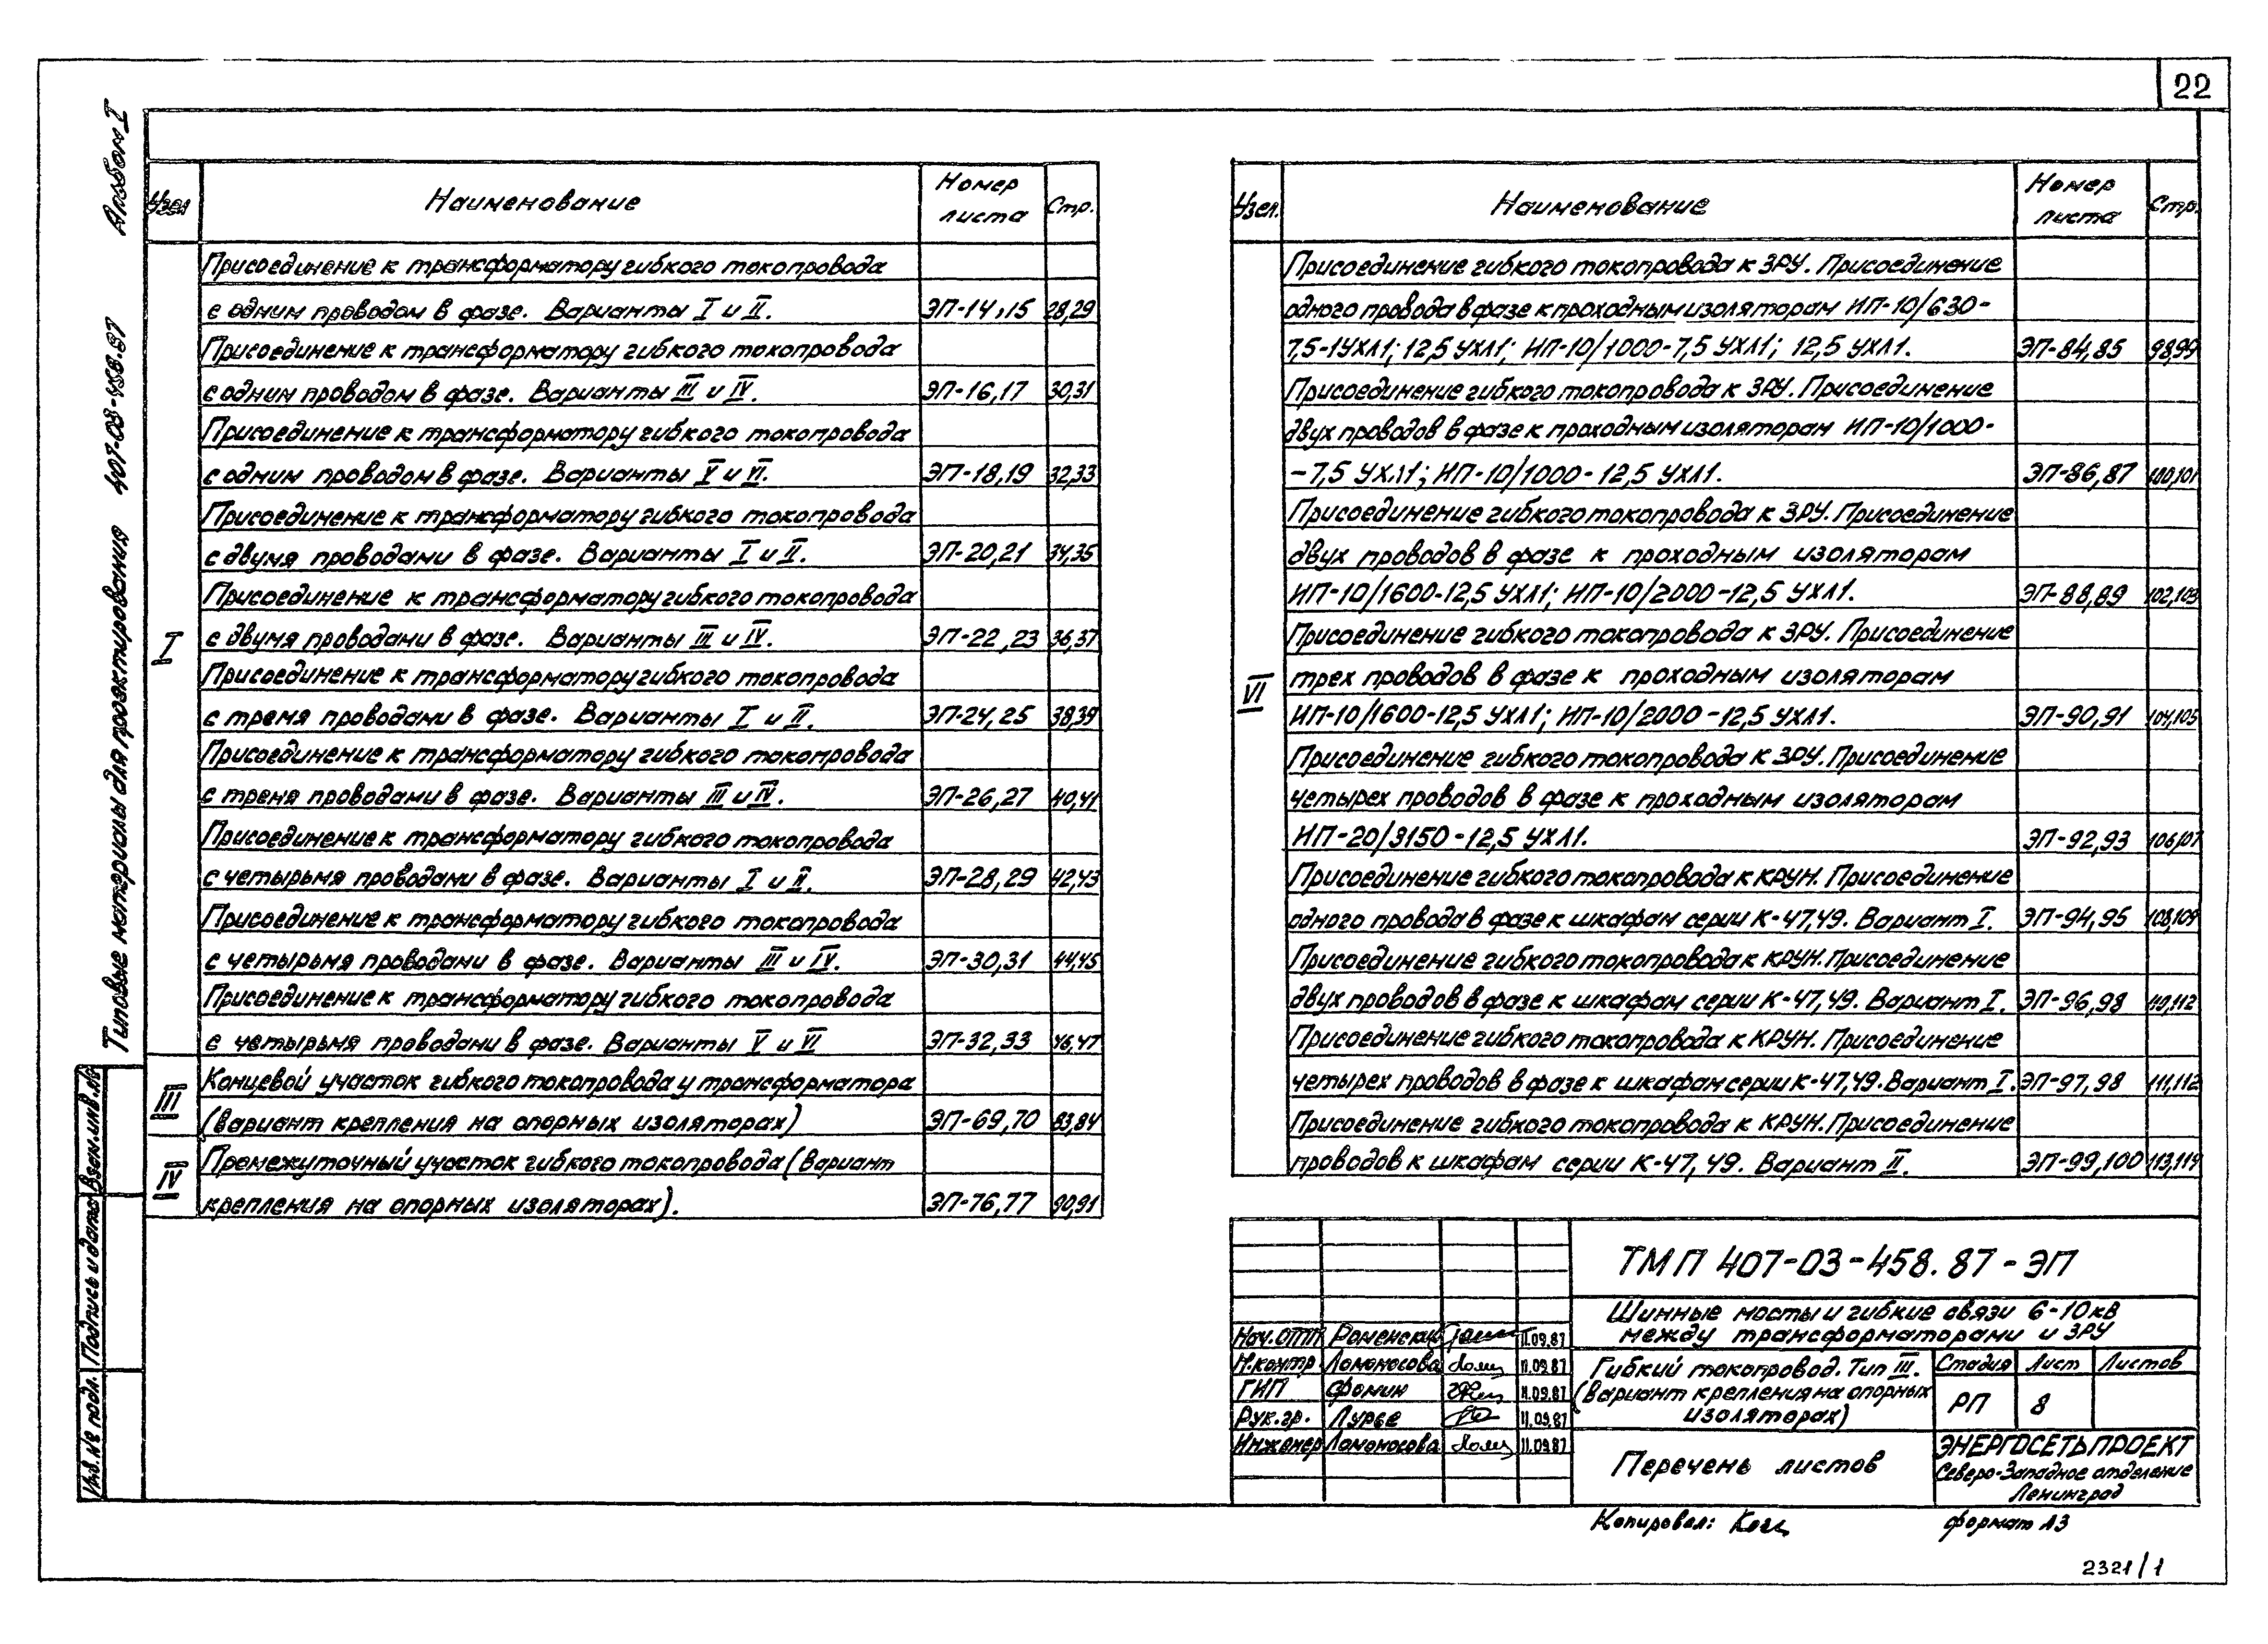 22
Альбом I
Типовые материалы для проектирования 407-03-458.87
Узел Наименование Номер листа Стр.
I
Присоединение к трансформатору гибкого токопровода
с одним проводом в фазе. Варианты I и II. ЭП-14,15 28,29
Присоединение к трансформатору гибкого токопровода
с одним проводом в фазе. Варианты III и IV. ЭП-16,17 30,31
Присоединение к трансформатору гибкого токопровода
с одним проводом в фазе. Варианты V и VI. ЭП-18,19 32,33
Присоединение к трансформатору гибкого токопровода
с двумя проводами в фазе. Варианты I и II. ЭП-20,21 34,35
Присоединение к трансформатору гибкого токопровода
с двумя проводами в фазе. Варианты III и IV. ЭП-22,23 36,37
Присоединение к трансформатору гибкого токопровода
с тремя проводами в фазе. Варианты I и II. ЭП-24,25 38,39
Присоединение к трансформатору гибкого токопровода
с тремя проводами в фазе. Варианты III и IV. ЭП-26,27 40,41
Присоединение к трансформатору гибкого токопровода
с четырьмя проводами в фазе. Варианты I и II. ЭП-28,29 42,43
Присоединение к трансформатору гибкого токопровода
с четырьмя проводами в фазе. Варианты III и IV. ЭП-30,31 44,45
Присоединение к трансформатору гибкого токопровода
с четырьмя проводами в фазе. Варианты V и VI ЭП-32,33 46,47
III
Концевой участок гибкого токопровода у трансформатора
(вариант крепления на опорных изоляторах) ЭП-69,70 83,84
IV
Промежуточный участок гибкого токопровода (вариант
крепления на опорных изоляторах). ЭП-76,77 90,91
Узел. Наименование Номер листа Стр.
VI
Присоединение гибкого токопровода к ЗРУ. Присоединение
одного провода в фазе к проходным изоляторам ИП-10/630-
7,5-1УХЛ1; 12,5 УХЛ1; ИП-10/1000-7,5 УХЛ1; 12,5 УХЛ1. ЭП-84,85 98,99
Присоединение гибкого токопровода к ЗРУ. Присоединение
двух проводов в фазе к проходным изоляторам ИП-10/1000-
-7,5 УХЛ1; ИП-10/1000-12,5 УХЛ1. ЭП-86,87 100,101
Присоединение гибкого токопровода к ЗРУ. Присоединение
двух проводов в фазе к проходным изоляторам
ИП-10/1600-12,5 УХЛ1; ИП-10/2000-12,5 УХЛ1. ЭП-88,89 102,103
Присоединение гибкого токопровода к ЗРУ. Присоединение
трех проводов в фазе к проходным изоляторам
ИП-10/1600-12,5 УХЛ1; ИП-10/2000-12,5 УХЛ1. ЭП-90,91 104,105
Присоединение гибкого токопровода к ЗРУ. Присоединение
четырех проводов в фазе к проходным изоляторам
ИП-20/3150-12,5 УХЛ1. ЭП-92,93 106,107
Присоединение гибкого токопровода к КРУН. Присоединение
одного провода в фазе к шкафам серии К-47,49. Вариант I. ЭП-94,95 108,109
Присоединение гибкого токопровода к КРУН. Присоединение
двух проводов в фазе к шкафам серии К-47,49. Вариант I. ЭП-96,98 110,112
Присоединение гибкого токопровода к КРУН. Присоединение
четырех проводов в фазе к шкафам серии К-47,49. Вариант I. ЭП-97,98 111,112
Присоединение гибкого токопровода к КРУН. Присоединение
проводов к шкафам серии К-47,49. Вариант II. ЭП-99,100 113,114
Взам.инв.№
Подпись и дата
Инв.№ подл.
ТМП 407-03-458.87-ЭП
Шинные мосты и гибкие связи 6-10кв
между трансформаторами и ЗРУ
Нач.ОТП Роменский 11.09.87
Н.контр. Ломоносова 11.09.87
ГИП Фомин 11.09.87
Рук.гр. Лурье 11.09.87
Инженер Ломоносова 11.09.87
Гибкий токопровод. Тип III.
(Вариант крепления на опорных
изоляторах)
Стадия Лист Листов
РП 8
Перечень листов
ЭНЕРГОСЕТЬПРОЕКТ
Северо-Западное отделение
Ленинград
Копировал:
формат А3
2321/1